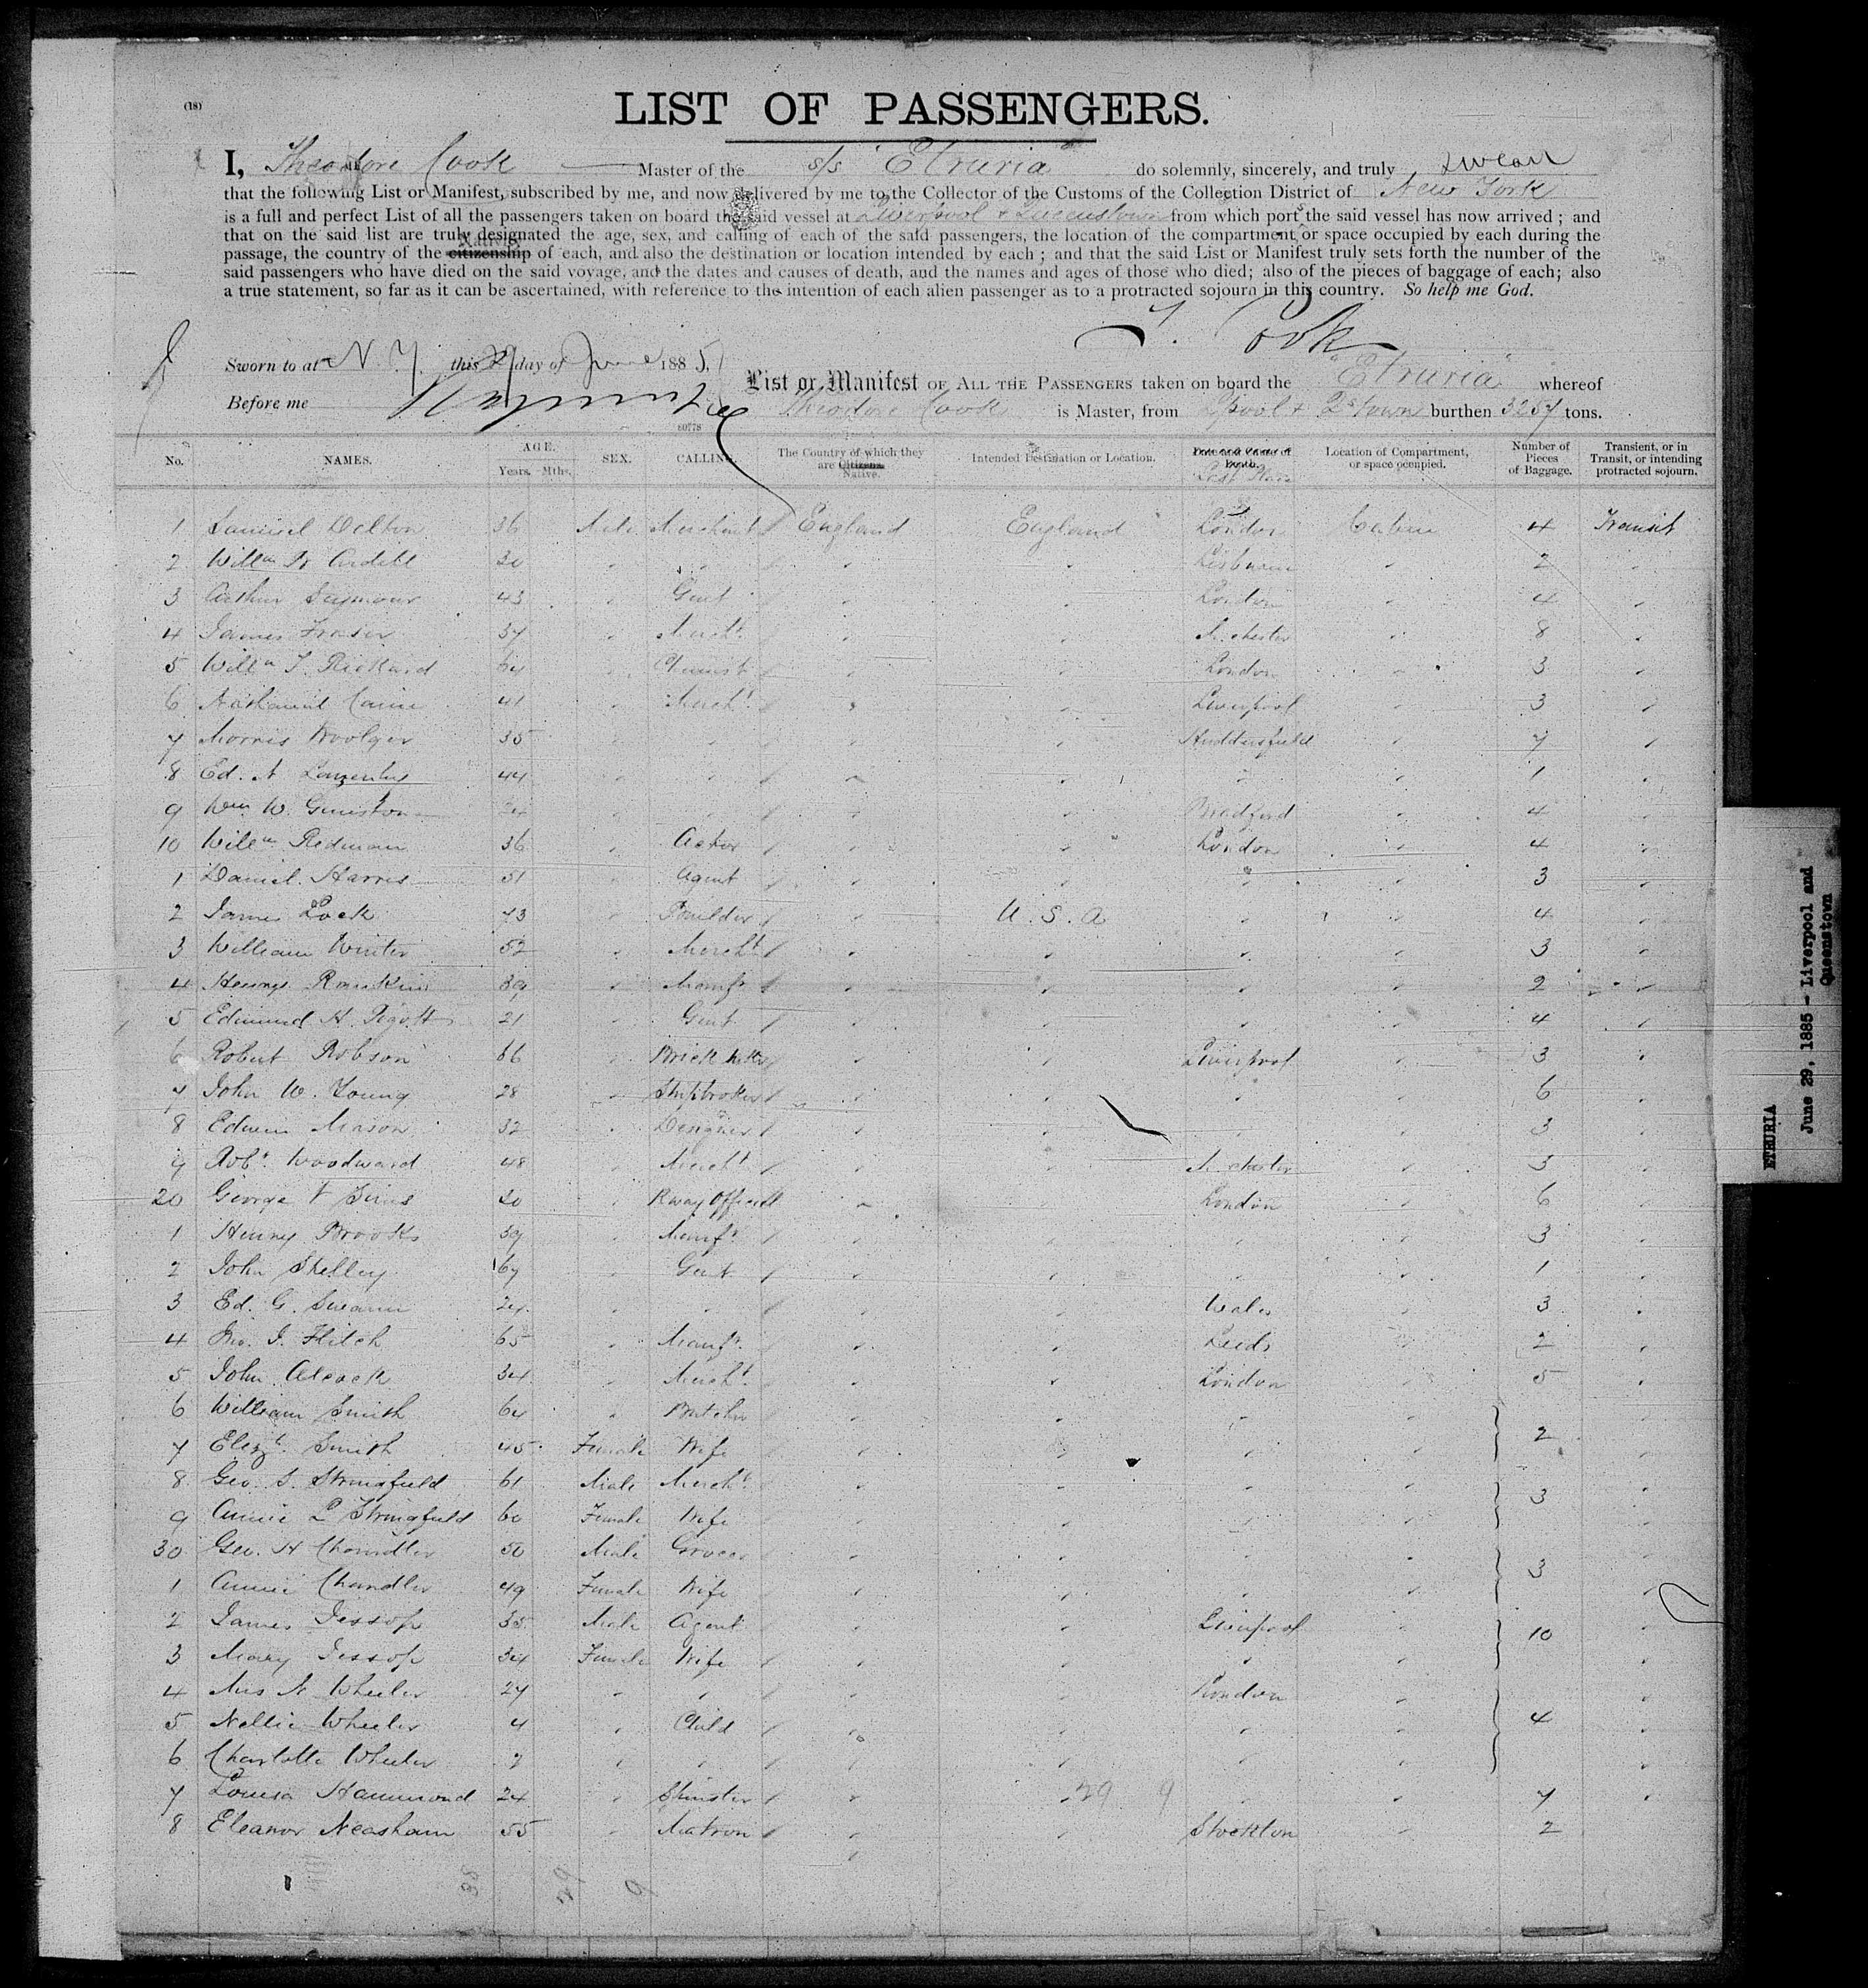 (18)
LIST OF PASSENGERS.
I, Theodore Cook Master of the s/s "Etruria" do solemnly, sincerely, and truly swear
that the following List or Manifest, subscribed by me, and now delivered by me to the Collector of the Customs of the Collection District of New York
is a full and perfect List of all the passengers taken on board the said vessel at Liverpool & Queenstown from which ports the said vessel has now arrived; and
that on the said list are truly designated the age, sex, and calling of each of the said passengers, the location of the compartment, or space occupied by each during the
Native
passage, the country of the citizenship of each, and also the destination or location intended by each; and that the said List or Manifest truly sets forth the number of the
said passengers who have died on the said voyage, and the dates and causes of death, and the names and ages of those who died; also of the pieces of baggage of each; also
a true statement, so far as it can be ascertained, with reference to the intention of each alien passenger as to a protracted sojourn in this country. So help me God.
T. Cook
Sworn to at N. Y. this 29 day of June 1885,
List or Manifest OF ALL THE PASSENGERS taken on board the "Etruria" whereof
Before me
Theodore Cook is Master, from L'pool & Q's town burthen 3257 tons.
60778
No. NAMES. AGE. Years. Mths. SEX. CALLING. The Country of which they are Citizens. Native. Intended Destination or Location. Date and Cause of Death. Last Place Location of Compartment, or space occupied. Number of Pieces of Baggage. Transient, or in Transit, or intending protracted sojourn.
1 Samuel Delton 36 Male Merchant England England London Cabin 4 Transit
2 Willm 30 " " " " Lisburn " 2 "
3 Arthur Seymour 43 " Gent " " London " 4 "
4 James Fraser 37 " Mercht " " M.chester " 8 "
5 Willm T. Rickard 64 " Chemist " " London " 3 "
6 Nathaniel Caine 41 " Mercht " " Liverpool " 3 "
7 Morris Woolger 35 " " " " Huddersfield " 7 "
8 Ed. A Lazenby 44 " " " " " " 1 "
9 Wm W. Gunston 24 " " " " Bradford " 4 "
10 Willm Redman 36 " Actor " " London " 4 "
1 Daniel Harris 51 " Agent " " " " 3 "
2 James Lock 43 " Builder " U. S. A " " 4 "
3 William Winter 52 " Mercht " " " " 3 "
4 George Rankin 39 " Manfr " " " " 2 "
5 Edmund H. Pigott 21 " Gent " " " " 4 "
6 Robert Robson 66 " Brick Mkr " " Liverpool " 3 "
7 John W. Young 28 " Shipbroker " " " " 6 "
8 Edwin Mason 32 " Designer " " " " 3 "
9 Robt. Woodward 48 " Mercht " " M.chester " 3 "
20 George V Sims 30 " Rway Official " " London " 6 "
1 Henry Brooks 39 " Manfr " " " " 3 "
2 John Shelley 67 " Gent " " " " 1 "
3 Ed. G. Swann 24 " " " " Wales " 3 "
4 Jno. J. Flitch 65 " Manfr. " " Leeds " 2 "
5 John Alcock 34 " Mercht. " " London " 5 "
6 William Smith 64 " Butcher " " " " "
7 Elizth. Smith 45 Female Wife " " " " 2 "
8 Geo. S. Stringfield 61 Male Mercht. " " " " "
9 Annie L Stringfield 60 Female Wife " " " " 3 "
30 Geo. H Chandler 50 Male Grocer " " " " "
1 Annie Chandler 49 Female Wife " " " " 3 "
2 James Jessop 35 Male Agent " " Liverpool " "
3 Mary Jessop 34 Female Wife " " " " 10 "
4 Mrs A Wheeler 27 " " " " London " "
5 Nellie Wheeler 4 " Child " " " " 4 "
6 Charlotte Wheeler 2 " " " " " " "
7 Louisa Hammond 24 " Spinster " " " " 7 "
29 9
8 Eleanor Neasham 55 " Matron " " Stockton " 2
38 29 9
ETRURIA
June 29, 1885 - Liverpool and
Queenstown